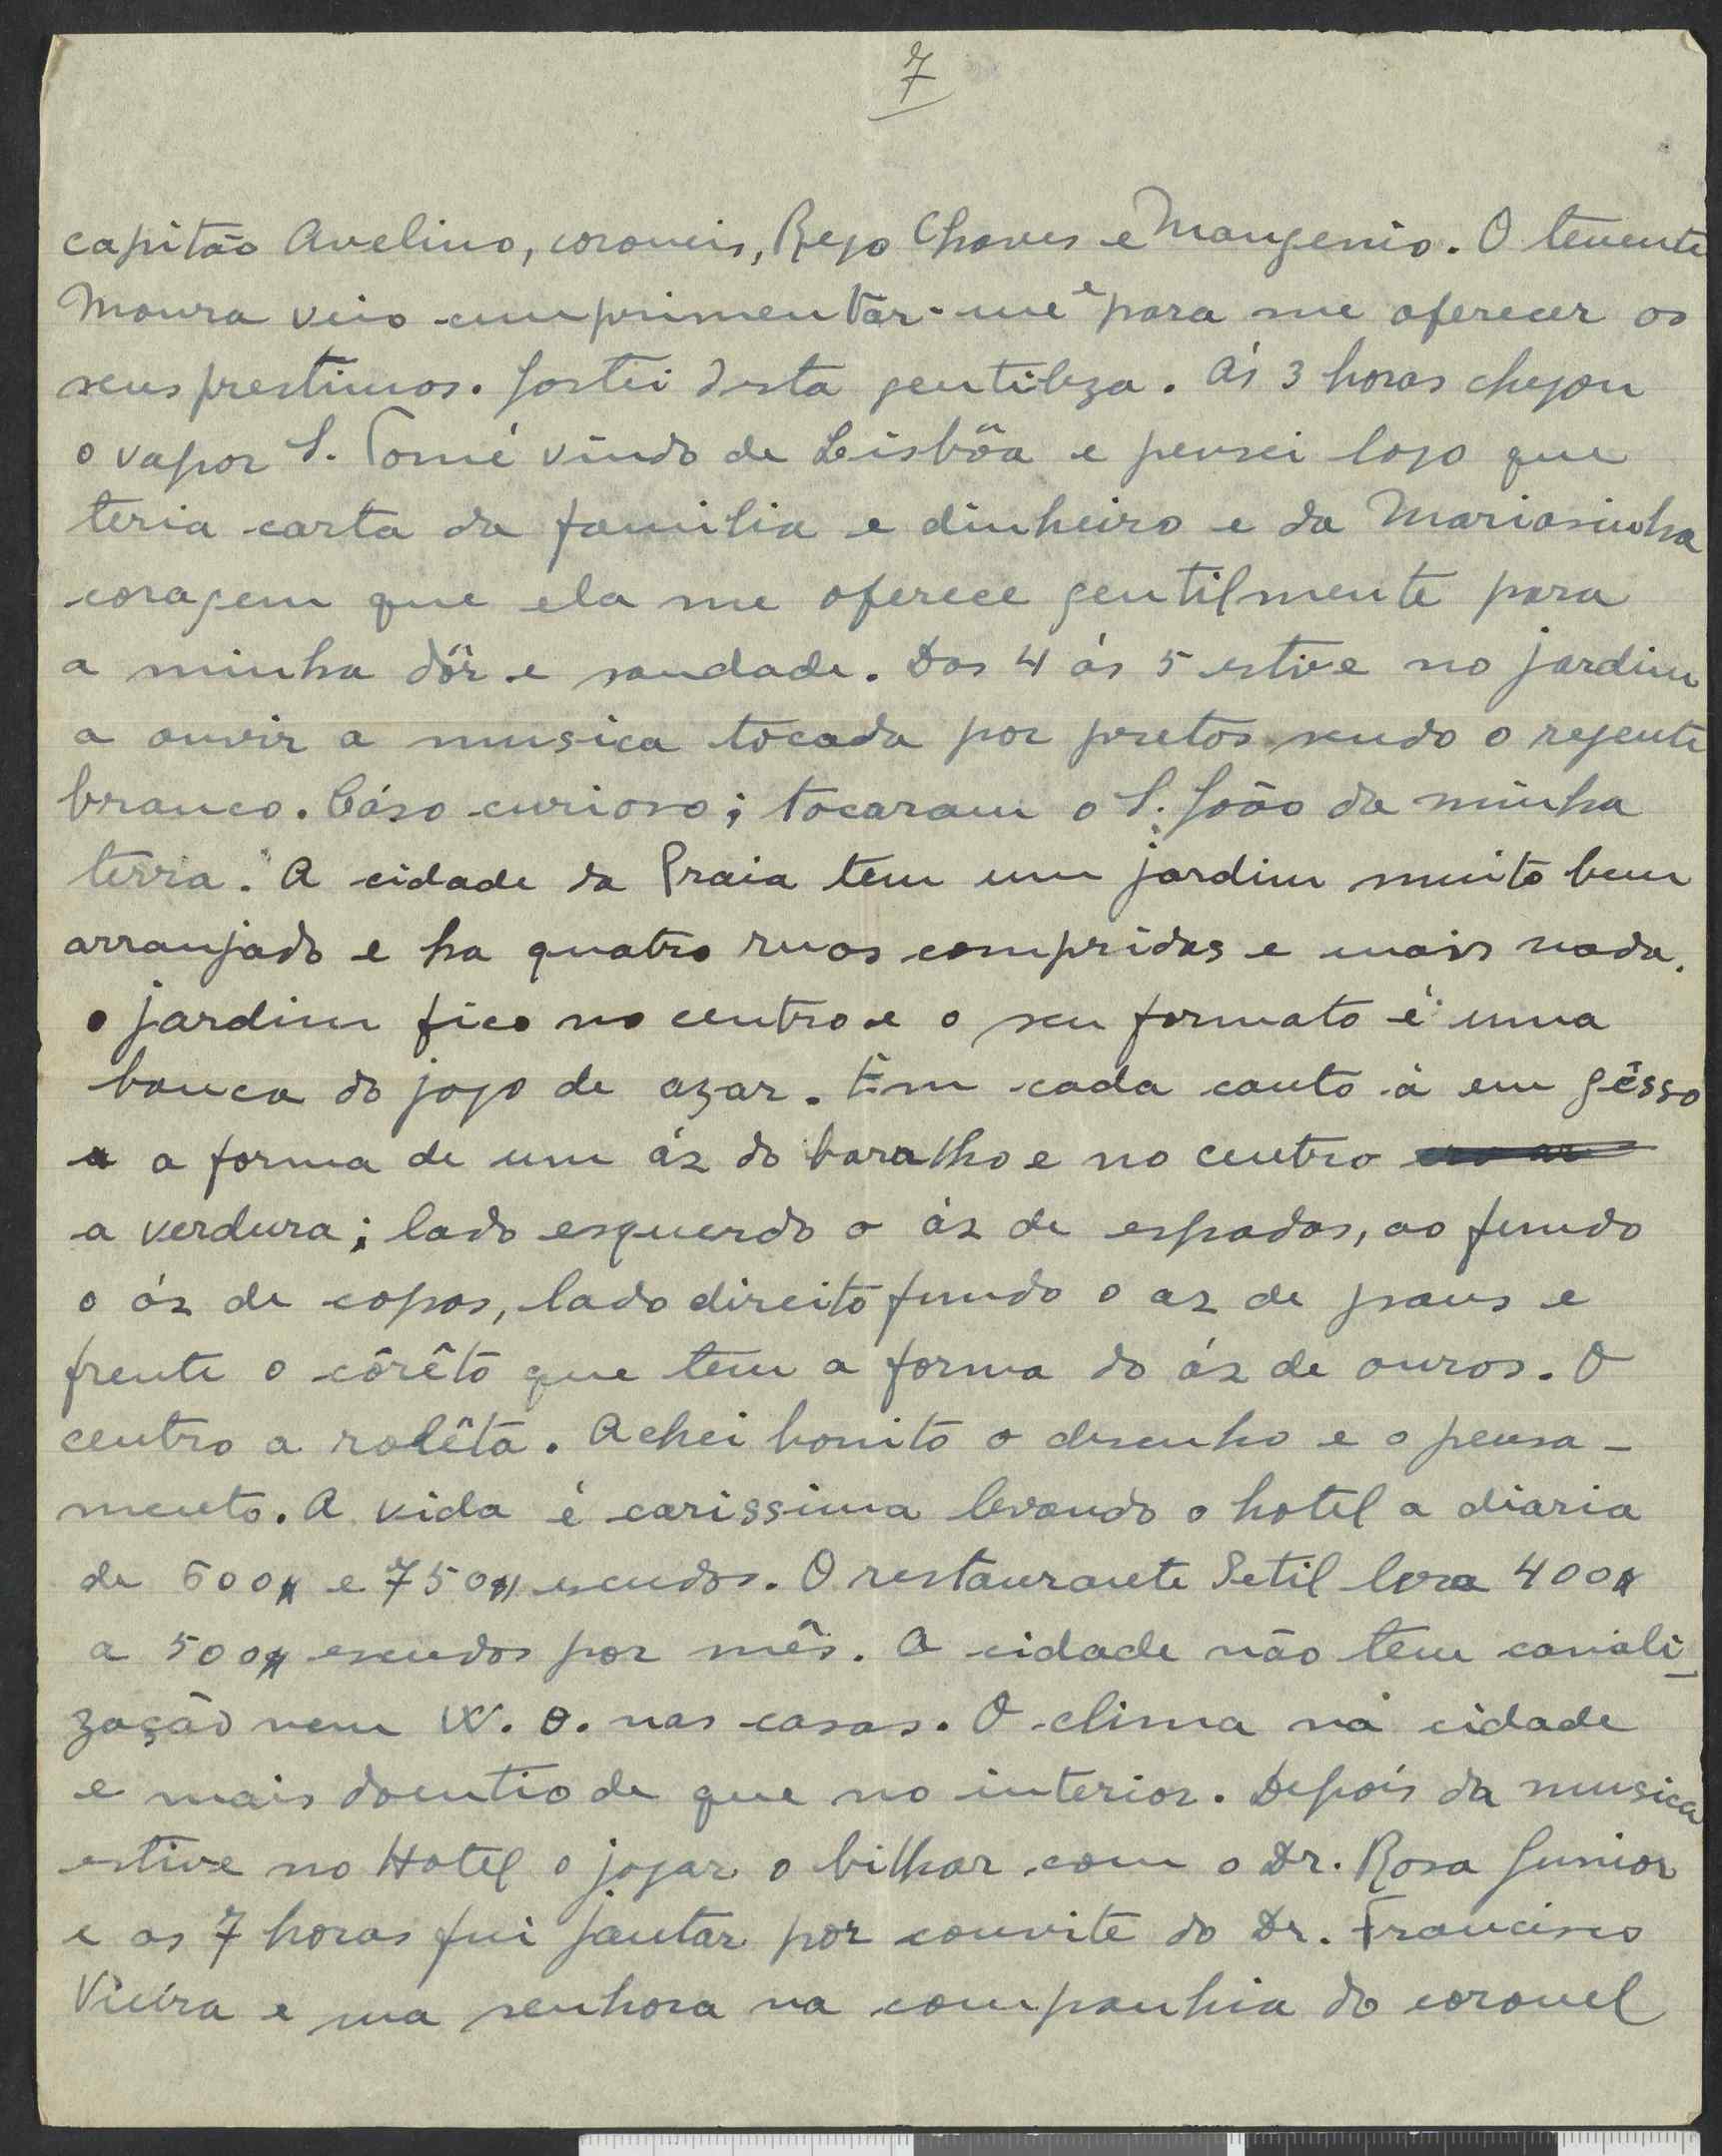 7
capitão Avelino, coroneis, Rego Chaves e Mangenio. O tenente
Moura veio cumprimentar-me e para me oferecer os
seus prestimos. Gostei desta gentileza. Ás 3 horas chegou
o vapor S. Tomé vindo de Lisbôa e pensei logo que
teria carta da familia e dinheiro e da Mariasinha
coragem que ela me oferece gentilmente para
a minha dôr e saudade. Das 4 ás 5 estive no jardim
a ouvir a musica tocada por pretos sendo o regente
branco. Cáso curioso; tocaram o S. João da minha
terra. A cidade da Praia tem um jardim muito bem
arranjado e ha quatro ruas compridas e mais nada.
O jardim fica no centro e o seu formato é uma
banca do jogo de azar. Em cada canto á em gêsso
a forma de um ás do baralho e no centro
a verdura; lado esquerdo o ás de espadas, ao fundo
o ás de copas, lado direito fundo o az de paus e
frente o côrêto que tem a forma do ás de ouros. O
centro a rolêta. Achei bonito o desenho e o pensa-
mento. A vida é carissima levando o hotel a diaria
de 600$ e 750$ escudos. O restaurante Setil leva 400$
a 500$ escudos por mês. A cidade não tem canali-
zação nem W. C. nas casas. O clima na cidade
e mais doentio de que no interior. Depois da musica
estive no Hotel a jogar o bilhar com o Dr. Rosa Junior
e as 7 horas fui jantar por convite do Dr. Francisco
Vieira e sua senhora na companhia do coronel